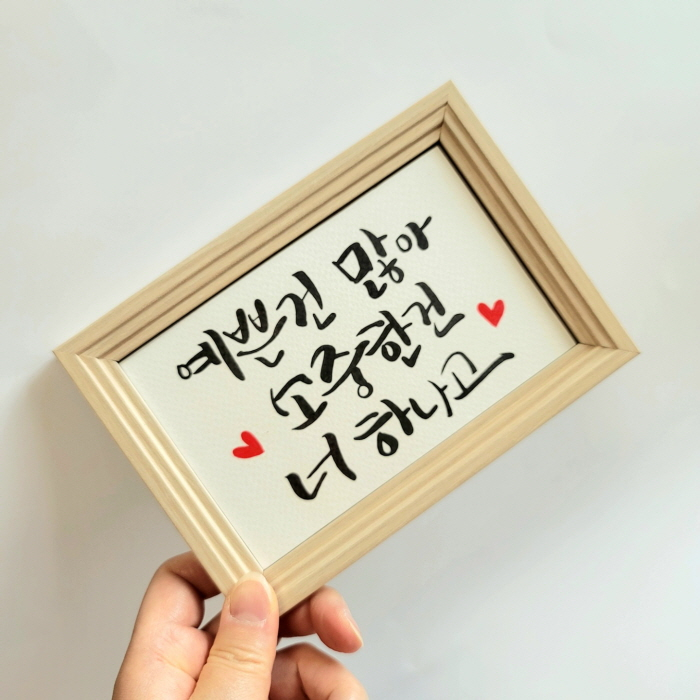 예쁜건 많아
소중한건
너 하나고